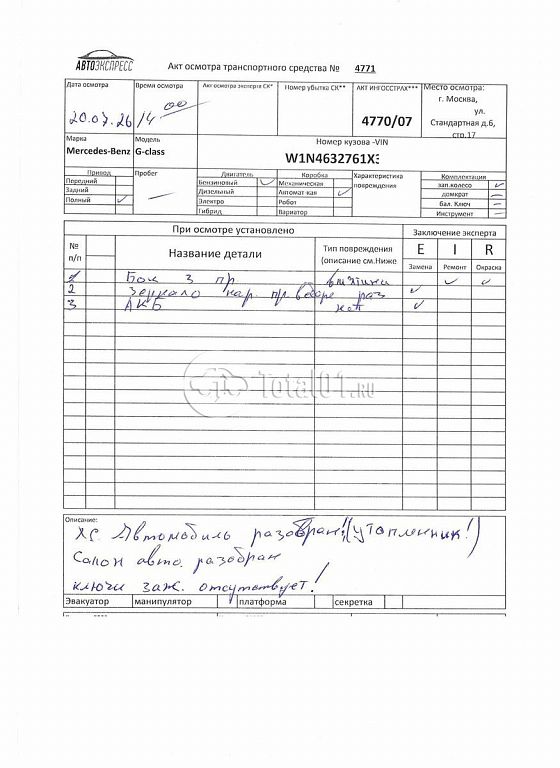 АВТОЭКСПРЕСС
Акт осмотра транспортного средства № 4771
Дата осмотра
20.07.26
Время осмотра
14 00
Акт осмотра эксперта СК*
Номер убытка СК**
АКТ ИНГОССТРАХ***
4770/07
Место осмотра:
г. Москва,
ул.
Стандартная д.6,
стр.17
Марка
Mercedes-Benz
Модель
G-class
Номер кузова -VIN
W1N4632761X
Привод
Передний
Задний
Полный
Пробег
Двигатель
Бензиновый
Дизельный
Электро
Гибрид
Коробка
Механическая
Автомат кая
Робот
Вариатор
Характеристика
повреждения
Комплектация
зап.колесо
домкрат
бал. Ключ
Инструмент
При осмотре установлено
Заключение эксперта
№
п/п
Название детали
Тип повреждения
(описание см.Ниже
E I R
Замена Ремонт Окраска
Бок 3 пр
2 Зеркало нар. пр. в сборе раз
3 АКБ нет
Total01.RU
Описание:
Х.С. Автомобиль разобран! (утопленник!)
Салон авто. разобран
ключи заж. отсутствует!
Эвакуатор манипулятор платформа секретка